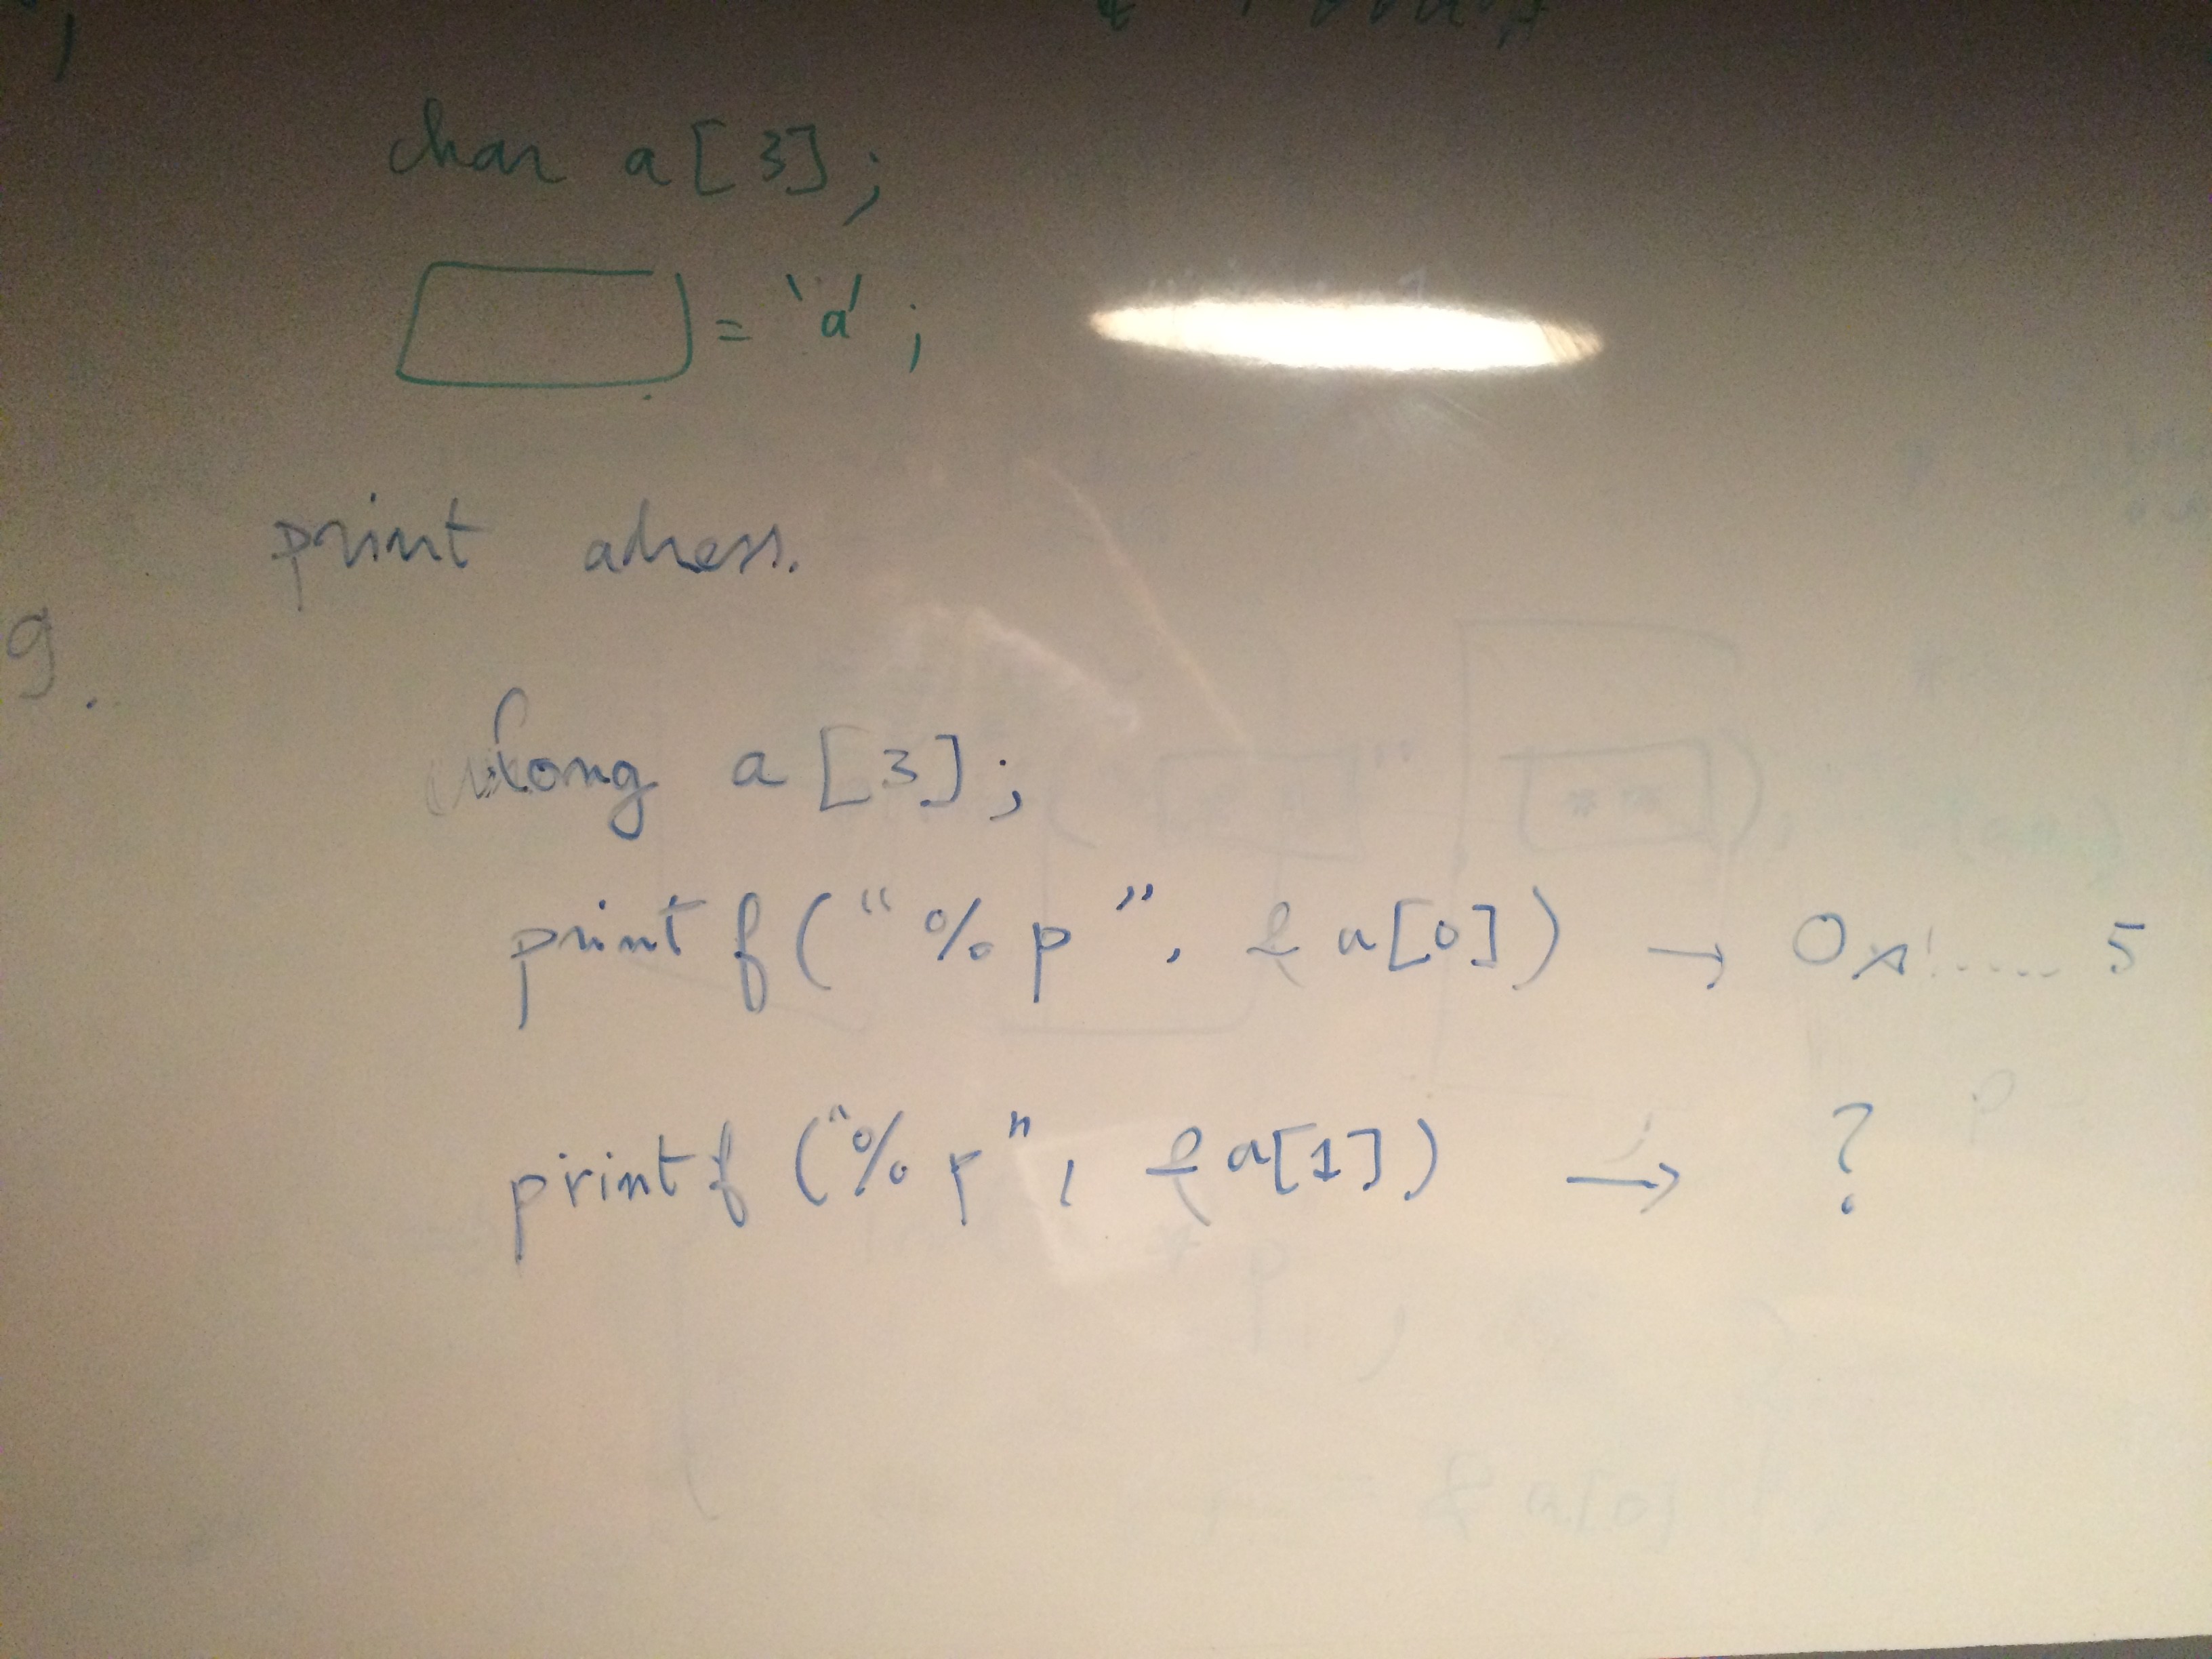 char a[3];
= 'a';
print adress.
9.
long a[3];
printf("%p", &a[0]) → 0x..... 5
printf("%p", &a[1]) → ?